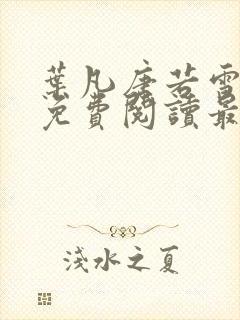 葉凡唐若雪
免費閱讀最
淺水之夏